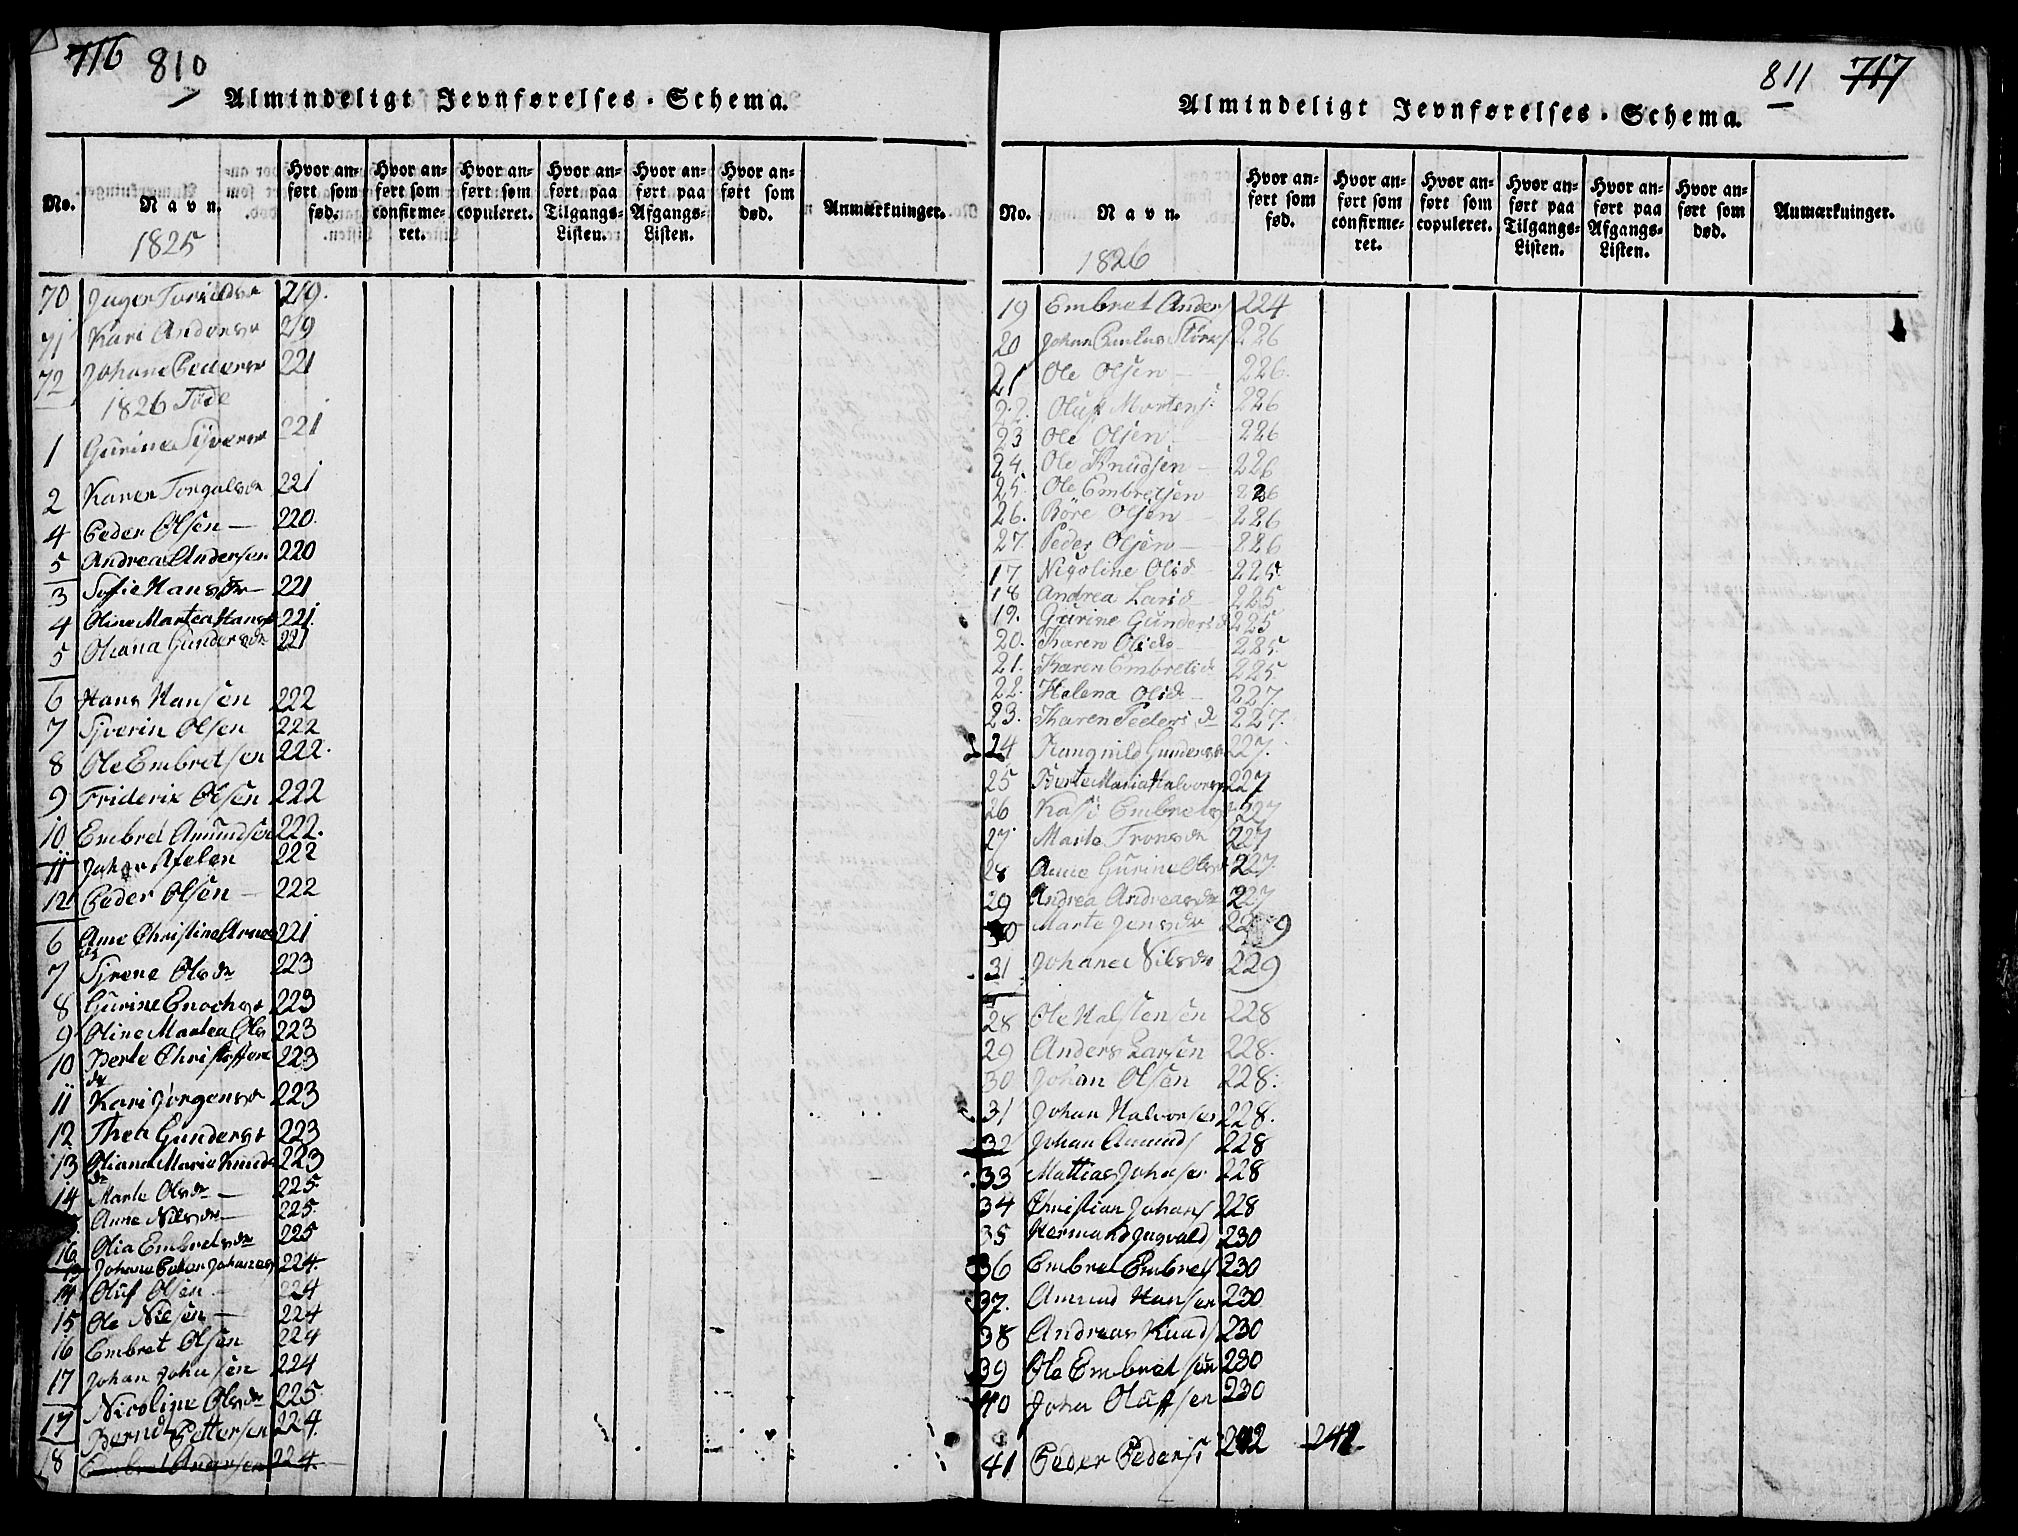 716 810
Almindeligt Jevnførelses-Schema.
No.
Navn.
1825
Hvor anført som fød.
Hvor anført som confirmeret.
Hvor anført som copuleret.
Hvor anført paa Tilgangs-Listen.
Hvor anført paa Afgangs-Listen.
Hvor anført som død.
Anmærkninger.
70 219.
71 Kari Andersdr 219
72 Johane Pedersdr 221
1826 Føde
1 Gurine Sÿversdr 221
2 Karen 221
4 Peder Olsen 220.
5 Andreas Andersen 220
3 Sofie Hansdr 221
4 Oline Martea Hansdr 221.
5 Oliana Gundersdr 221
6 Hans Hansen 222
7 Sÿverin Olsen 222
8 Ole Embretsen 222.
9 Friderik Olsen 222
10 Embret Amundsen 222.
11 Johan 222
12 Peder Olsen 222
6 Ane Christine Arnes 221
7 Sÿrene Olsdr 223
8 Gurine Enochsdr 223
9 Oline Martea Ols 223
10 Berte Christoffers 223
dr
11 Kari Jørgensdr 223
12 Thea Gundersdr 223
13 Oliana Maria Knuds 223
dr
14 Marte Olsdr 225
Anne Nilsdr 225.
16 Olia Embretsdr 225
13 Johane Johanes 224.
14 Oluf Olsen 224
15 Ole Nilsen 224
16 Embret Olsen 224
17 Johan Johnsen 224
Nicoline Olsdr 225.
17 Bernd Pettersen 224.
18 Embret Andersen 224.
811 717
Almindeligt Jevnførelses-Schema.
No.
Navn.
1826
Hvor anført som fød.
Hvor anført som confirmeret.
Hvor anført som copuleret.
Hvor anført paa Tilgangs-Listen.
Hvor anført paa Afgangs-Listen.
Hvor anført som død.
Anmærkninger.
19 Embret Anders 224
20 Johan 226
21 Ole Olsen 226.
22. Oluf Mortens. 226
23 Ole Olsen 226
24. Ole Knudsen 226
25. Ole Embretsen 226
26. Børe Olsen 226
27. Peder Olsen 226
17 Nigoline Olsd 225.
18 Andrea Larsd 225
19. Gurine Gundersd 225
20. Karen Olsdr 225.
21. Karen Embretsd 225
22. Helena Olsdr 227.
23. Karen Peders dr 227.
24 Rangnild Gundersdr 227.
25 Berte Maria Halvorsdr 227
26 Kasi Embretsdr 227
27 Marte Tronsdr 227
28 Anne Gurine Olsdr 227.
29 Andrea Andreasdr 227
30 Marte Jensdr 229
31 Johane Nilsdr 229
28 Ole Halstensen 228
29 Anders Larsen 228.
30 Johan Olsen 228.
31 Johan Halvorsen 228.
32 Johan Amunds 228
33 Mattias Johnsen 228
34 Christian Johans 228
35 Herman Ingvald 230
36 Embret Embrets 230
37. Amund Hansen 230
38 Andreas Knuds 230
39 Ole Embretsen 230
40 John Olufsen 230
41 Peder Peders 242 242